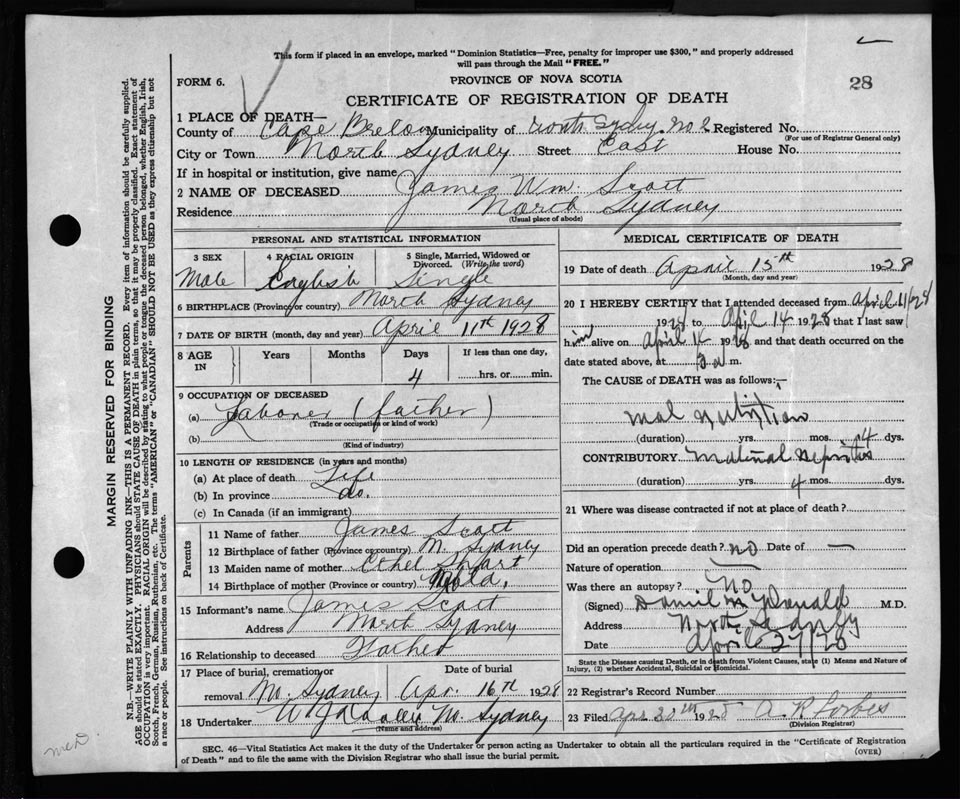 This form if placed in an envelope, marked "Dominion Statistics—Free, penalty for improper use $300," and properly addressed
will pass through the Mail "FREE."
FORM 6. PROVINCE OF NOVA SCOTIA 28
CERTIFICATE OF REGISTRATION OF DEATH
1 PLACE OF DEATH—
County of Cape Breton Municipality of North Sydney No 2 Registered No.
(For use of Registrar General only)
City or Town North Sydney Street East House No.
If in hospital or institution, give name
2 NAME OF DECEASED James Wm. Scott
Residence North Sydney
(Usual place of abode)
PERSONAL AND STATISTICAL INFORMATION
3 SEX 4 RACIAL ORIGIN 5 Single, Married, Widowed or Divorced. (Write the word)
Male English Single
6 BIRTHPLACE (Province or country) North Sydney
7 DATE OF BIRTH (month, day and year) April 11th 1928
8 AGE IN Years Months Days If less than one day,
4 hrs. or min.
9 OCCUPATION OF DECEASED
(a) Laborer (father)
(Trade or occupation or kind of work)
(b)
(Kind of industry)
10 LENGTH OF RESIDENCE (in years and months)
(a) At place of death Life
(b) In province do.
(c) In Canada (if an immigrant)
Parents
11 Name of father James Scott
12 Birthplace of father (Province or country) N. Sydney
13 Maiden name of mother Ethel
14 Birthplace of mother (Province or country) Nfld.
15 Informant's name James Scott
Address North Sydney
16 Relationship to deceased Father
17 Place of burial, cremation or removal Date of burial
N. Sydney Apr. 16th 1928
18 Undertaker N. Sydney
(Name and address)
MEDICAL CERTIFICATE OF DEATH
19 Date of death April 15th 1928
(Month, day and year)
20 I HEREBY CERTIFY that I attended deceased from April 11/28
1928 to April 14 1928 that I last saw
him alive on April 14 1928 and that death occurred on the
date stated above, at 3 a m.
The CAUSE of DEATH was as follows:
Mal nutrition
(duration) yrs. mos. 4 dys.
CONTRIBUTORY Maternal Nephritis
(duration) yrs. 4 mos. dys.
21 Where was disease contracted if not at place of death?
Did an operation precede death? No Date of —
Nature of operation —
Was there an autopsy? No
(Signed) M.D.
Address North Sydney
Date April 27/28
State the Disease causing Death, or in death from Violent Causes, state (1) Means and Nature of
Injury, (2) whether Accidental, Suicidal or Homicidal.
22 Registrar's Record Number
23 Filed Apr 30th 1928 A. R. Forbes
(Division Registrar)
SEC. 46—Vital Statistics Act makes it the duty of the Undertaker or person acting as Undertaker to obtain all the particulars required in the "Certificate of Registration
of Death" and to file the same with the Division Registrar who shall issue the burial permit. (OVER)
MARGIN RESERVED FOR BINDING
N.B.—WRITE PLAINLY WITH UNFADING INK—THIS IS A PERMANENT RECORD. Every item of information should be carefully supplied.
AGE should be stated EXACTLY. PHYSICIANS should STATE CAUSE OF DEATH in plain terms, so that it may be properly classified. Exact statement of
OCCUPATION is very important. RACIAL ORIGIN will be described by stating to what people or tongue the deceased person belonged, whether English, Irish,
Scotch, French, German, Russian, Ruthenian, etc. The terms "AMERICAN" or "CANADIAN" SHOULD NOT BE USED as they express citizenship but not
a race or people. See instructions on back of Certificate.